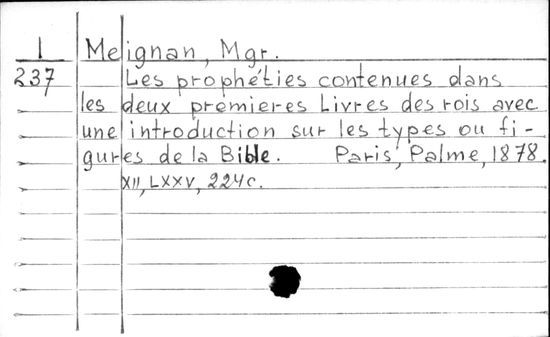 I Meignan, Mgr.
237 Les prophéties contenues dans
les deux premieres Livres des rois avec
une introduction sur les types ou fi-
gures de la Bible. Paris, Palme, 1878.
XII, LXXV, 224c.